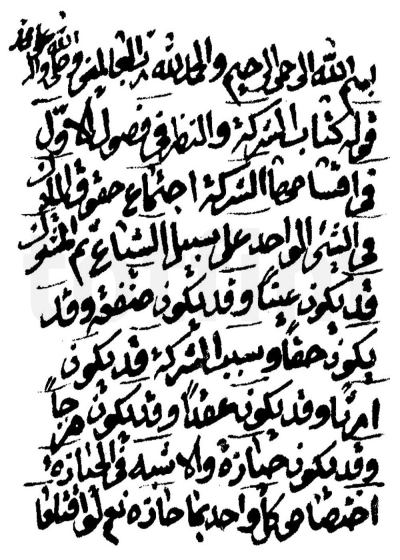 بسم الله الرحمن الرحيم والحمد لله رب العالمين وصلى الله على محمد واله
قوله كتاب الشركة والنظر في فصول الاوّل
في اقسامها الشركة اجتماع حقوق الملاك
في الشئ الواحد على سبيل الشياع ثم المشترك
قد يكون عيناً وقد يكون منفعة وقد
يكون حقاً وسبب الشركة قد يكون
ارثا وقد يكون عقداً وقد يكون مزجاً
وقد يكون حيازة والاشبه في الحيازة
اختصاص كل واحد بما حازه نعم لو اقتلعا